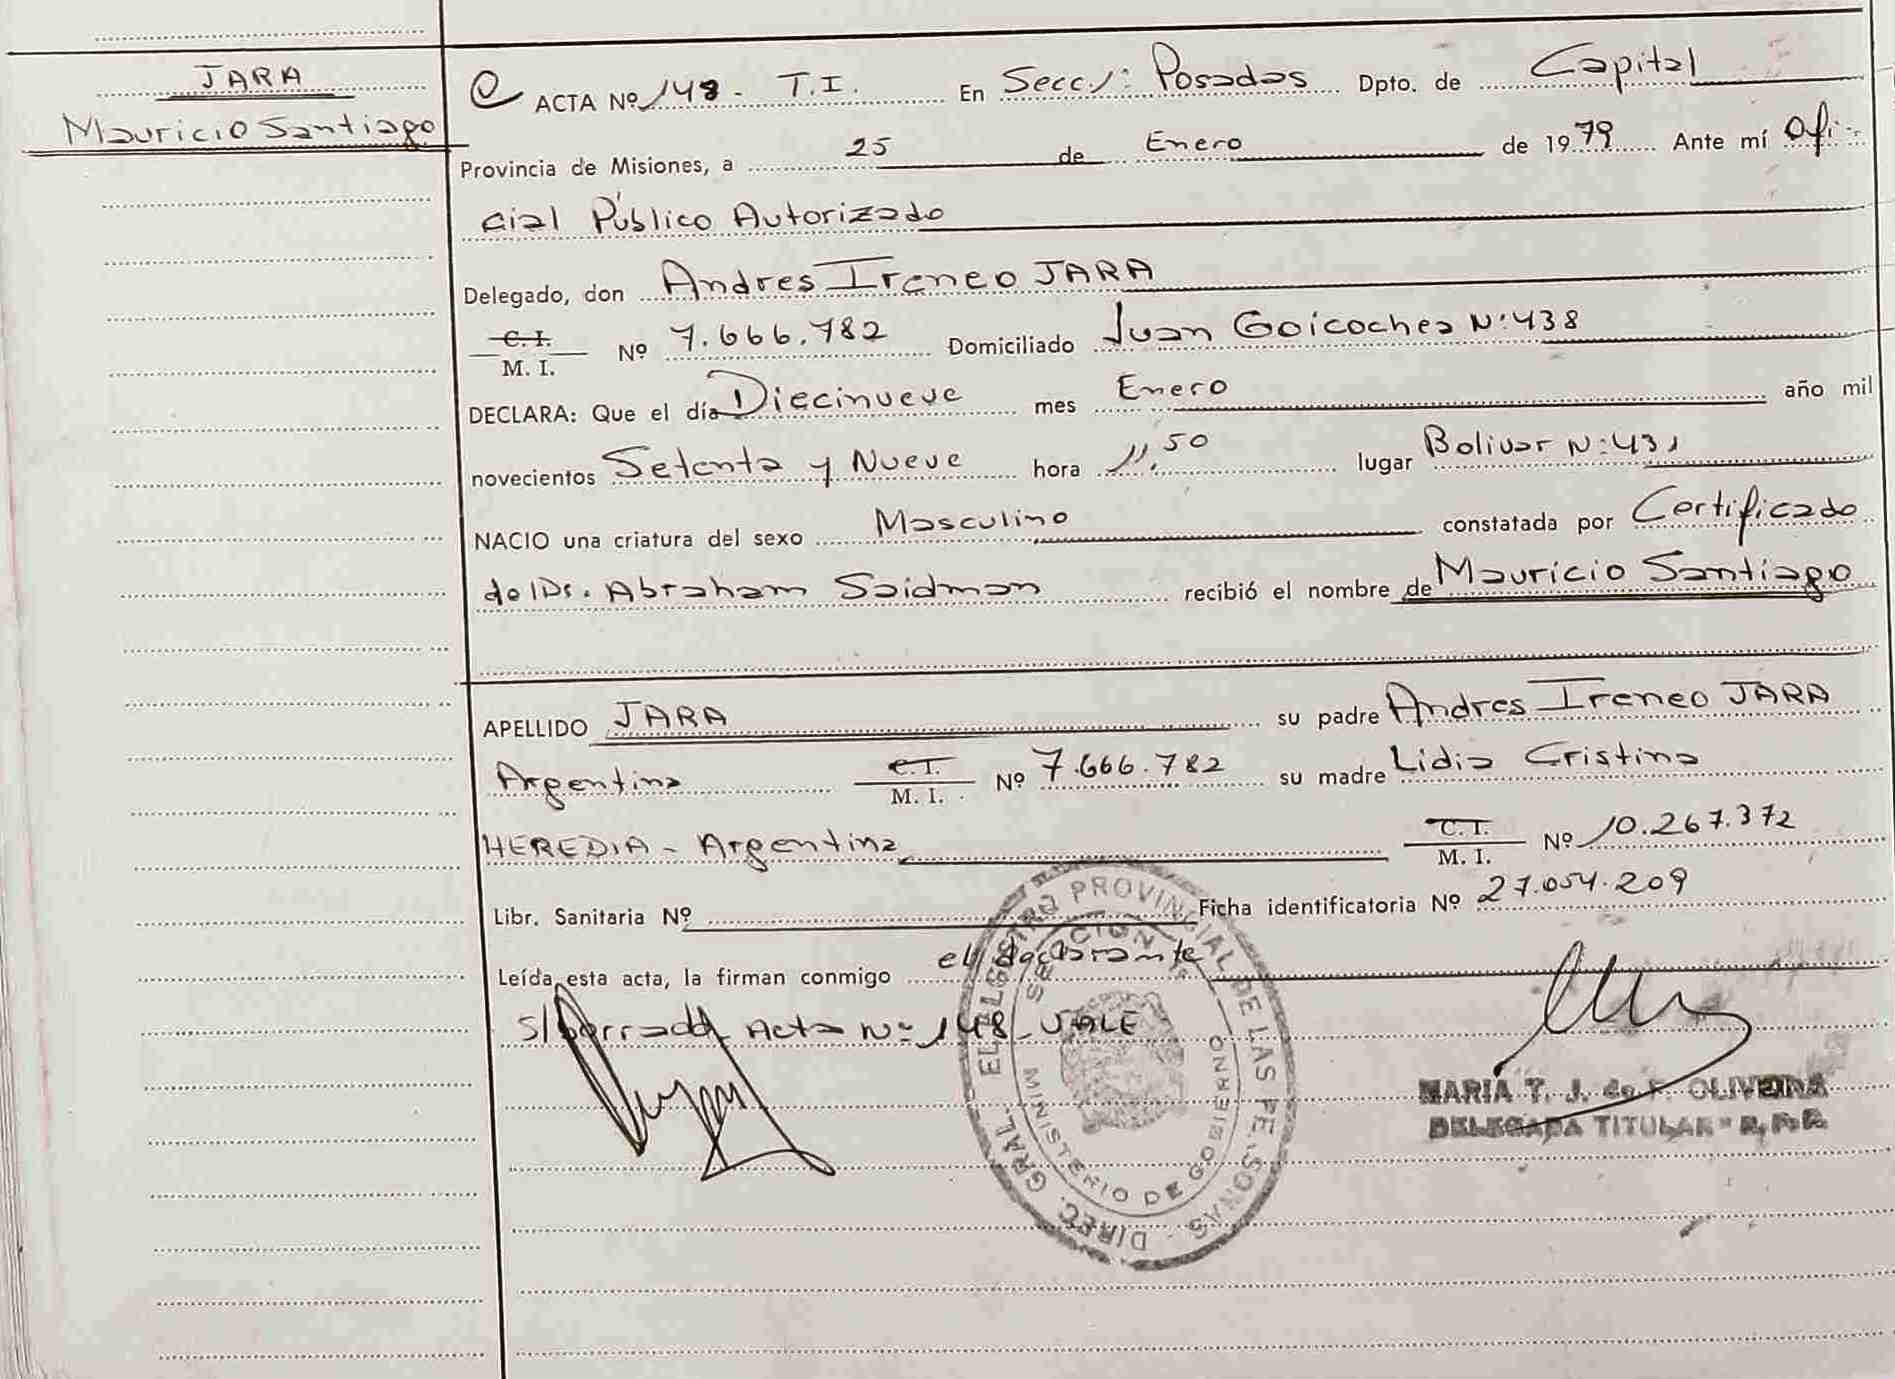 JARA
Mauricio Santiago
ACTA Nº 148 - T.I. En Secc./: Posadas Dpto. de Capital
Provincia de Misiones, a 25 de Enero de 1979 Ante mí Ofi-
cial Público Autorizado
Delegado, don Andres Ireneo JARA
C. I.
M. I. Nº 7.666.782 Domiciliado Juan Goicochea N:438
DECLARA: Que el día Diecinueve mes Enero año mil
novecientos Setenta y Nueve hora 11,50 lugar Bolivar N:431
NACIO una criatura del sexo Masculino constatada por Certificado
del Dr. Abraham Saidman recibió el nombre de Mauricio Santiago
APELLIDO JARA su padre Andres Ireneo JARA
Argentina C. I.
M. I. Nº 7.666.782 su madre Lidia Cristina
HEREDIA - Argentina C. I.
M. I. Nº 10.267.372
Libr. Sanitaria Nº Ficha identificatoria Nº 27.054.209
Leída esta acta, la firman conmigo el declarante
S/borrado Acta Nº 148 - VALE
DIREC. GRAL. EL REGISTRO PROVINCIAL DE LAS PE. SONAS
MINISTERIO DE GOBIERNO
MARIA T. J. de F. OLIVEIRA
DELEGADA TITULAR - R. P. P.